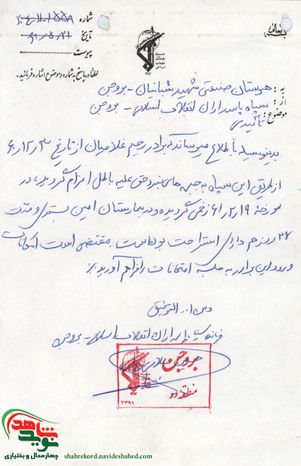 بسمه تعالی
شماره
تاریخ
پیوست
لطفاً در پاسخ به شماره و موضوع اشاره فرمائید.
به: هنرستان صنعتی شهید شبانیان - بروجن
از: سپاه پاسداران انقلاب اسلامی - بروجن
موضوع: تأییدی
بدینوسیله باطلاع میرساند که برادر رحیم غلامیان از تاریخ
از طریق این سپاه به جبهه‌های نبرد حق علیه باطل اعزام گردید، در
مورخه زخمی گردیده و در بیمارستان امین بستری و مدت
۲۶ روز هم دارای استراحت بوده است. مقتضی است امکانات
ورود این برادر به جلسه امتحانات را فراهم آورید./
و من ا... التوفیق
فرمانده سپاه پاسداران انقلاب اسلامی - بروجن
بروجن
منطقه دو
نوید شاهد
چهارمحال و بختیاری
shahrekord.navideshahed.com